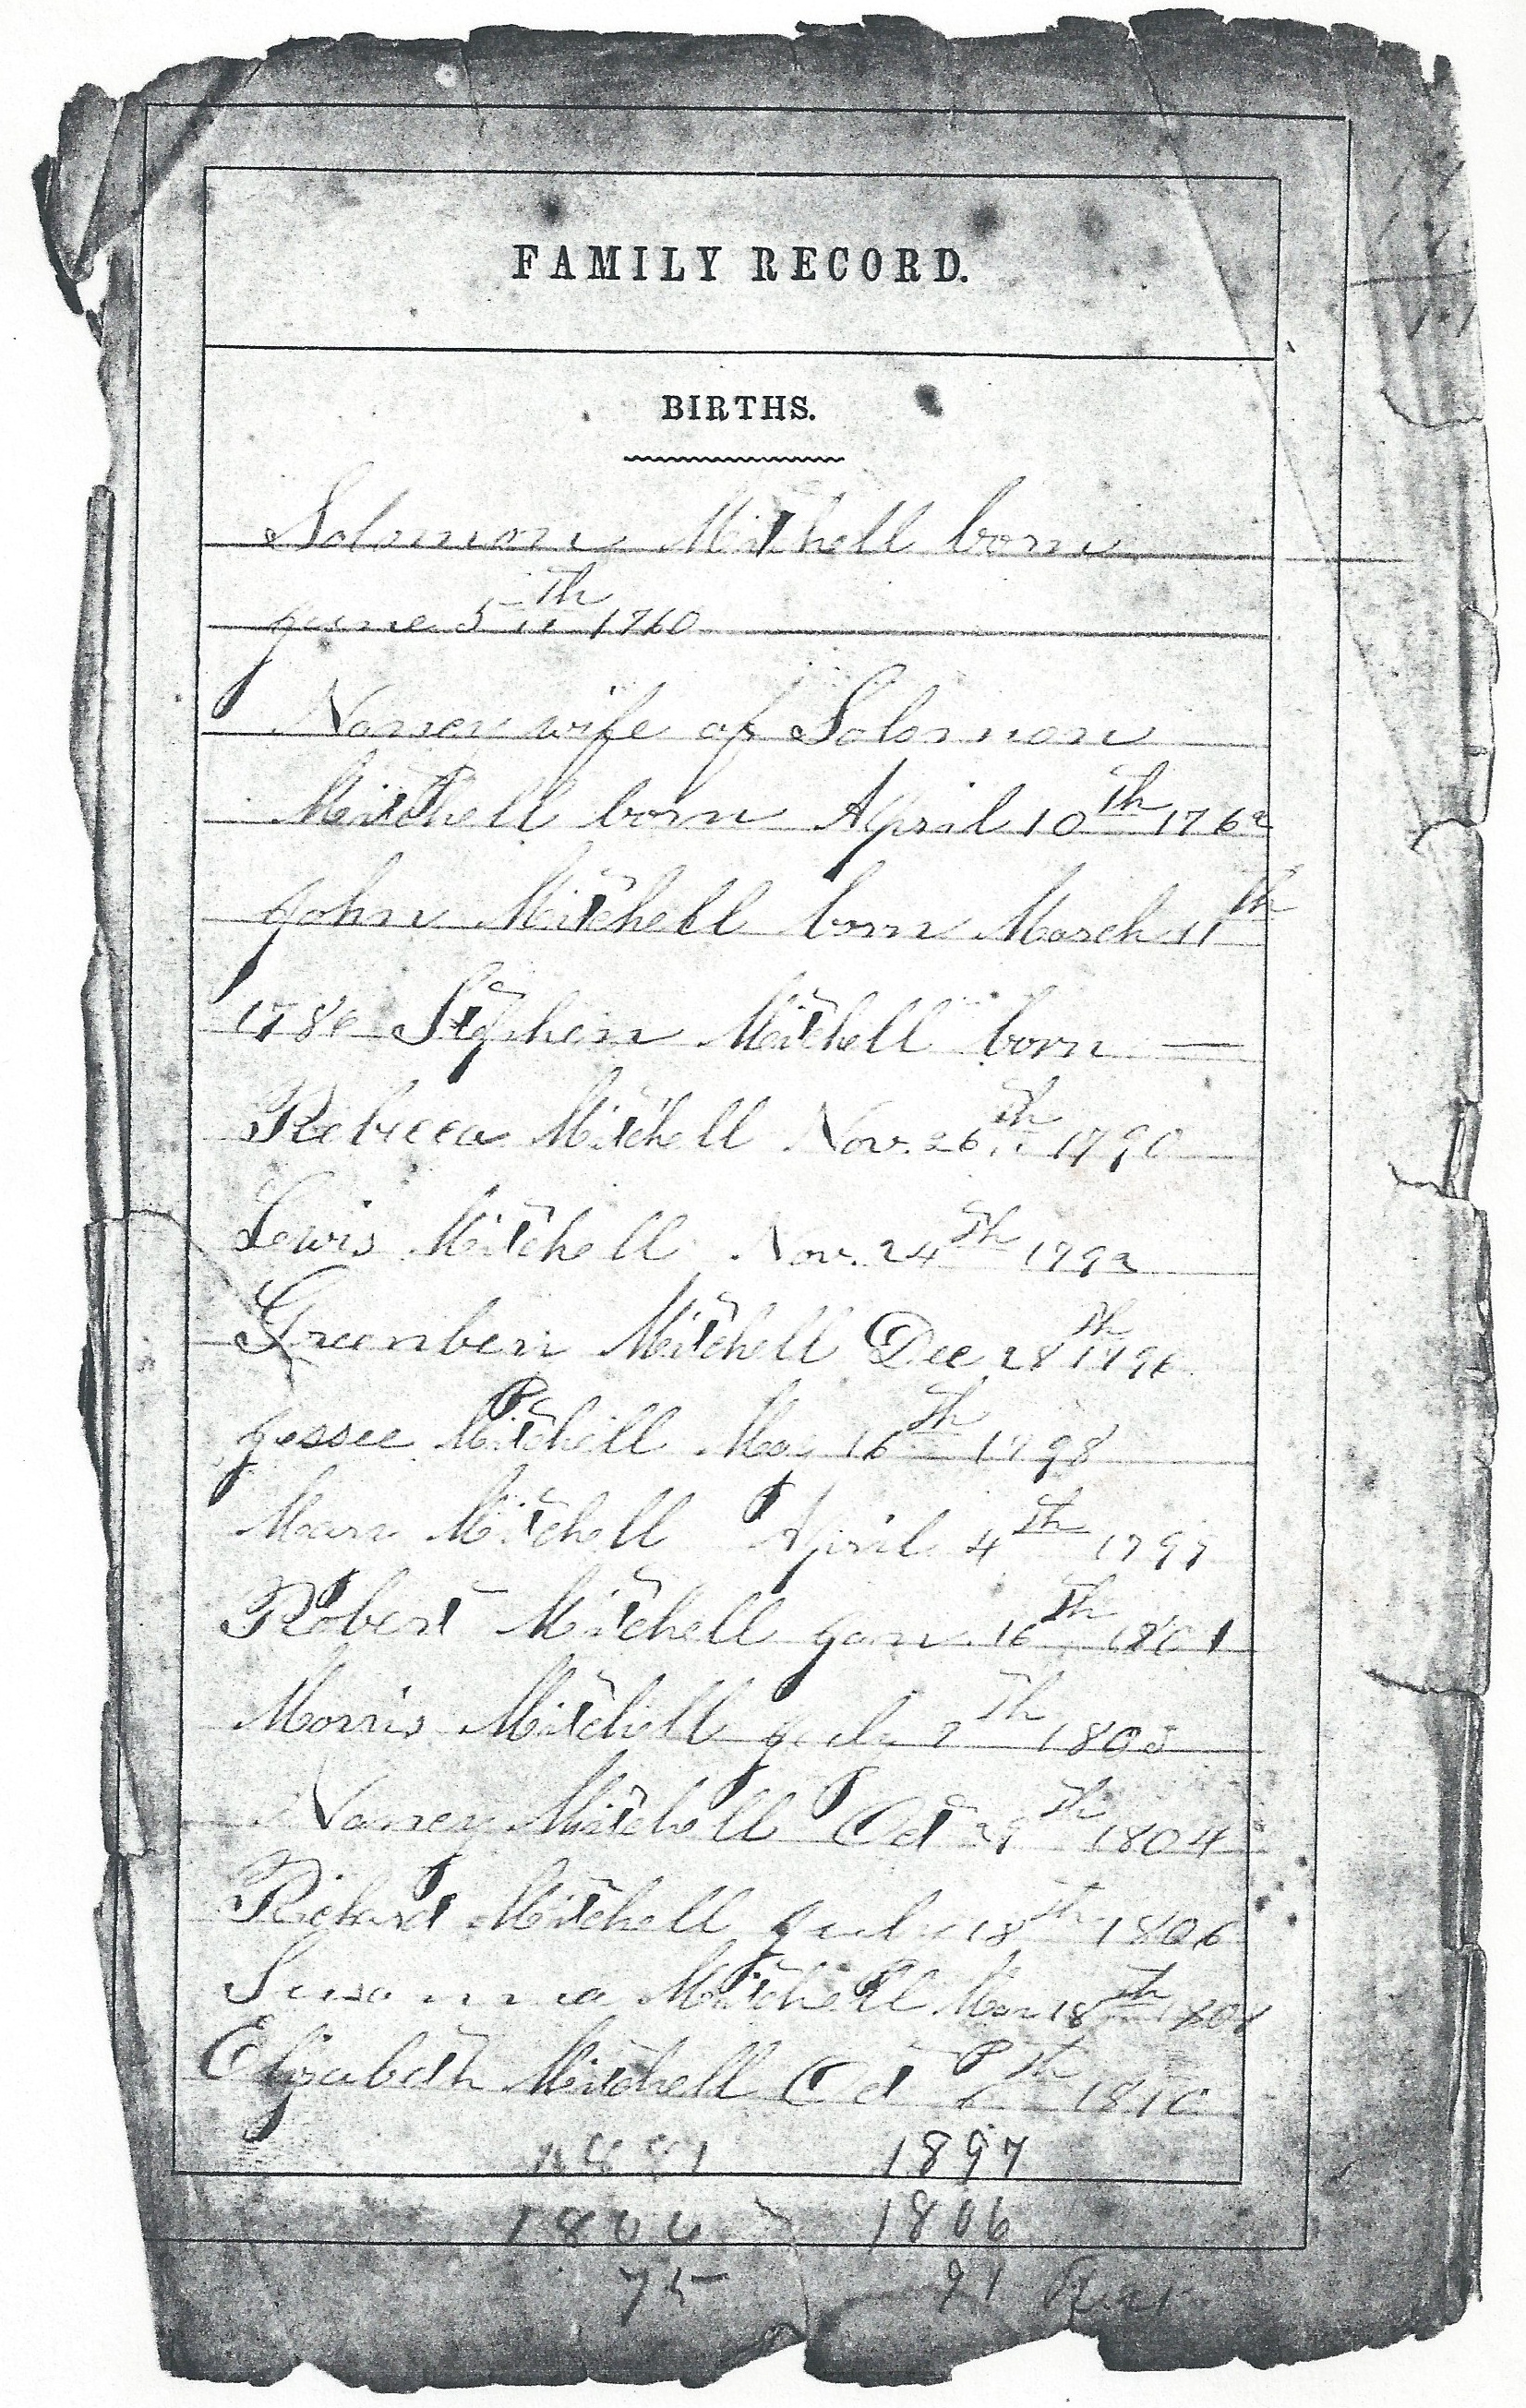 FAMILY RECORD.
BIRTHS.
Solomon Mitchell born
June 5th 1760
Nancy wife of Solomon
Mitchell born April 10th 1762
John Mitchell born March 11th
1786 Stephen Mitchell born —
Rebecca Mitchell Nov. 26th 1790
Lewis Mitchell Nov. 24th 1792
Greenberr Mitchell Dec 28th 1796
Jessee Mitchell 16th 1798
Mary Mitchell April 4th
Robert Mitchell Jan. 16th 1801
Morris Mitchell July th 1803
Nancy Mitchell Oct th 1804
Richard Mitchell July 18th 1806
Susanna Mitchell 18th
Elizabeth Mitchell Oct th 1810
1881 1897
1806 1806
75 91